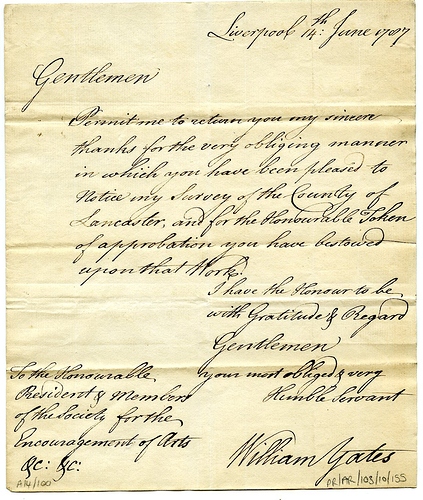 Liverpool 14th: June 1787
Gentlemen
Permit me to return you my sincere
thanks for the very obliging manner
in which you have been pleased to
Notice my Survey of the County of
Lancaster, and for the Honourable Token
of approbation you have bestowed
upon that Work.
I have the Honour to be
with Gratitude & Regard
Gentlemen
your most obliged & very
Humble Servant
To the Honourable
President & Members
of the Society for the
Encouragement of Arts
&c: &c:
William Yates
A14/100
PR/AR/103/10/155